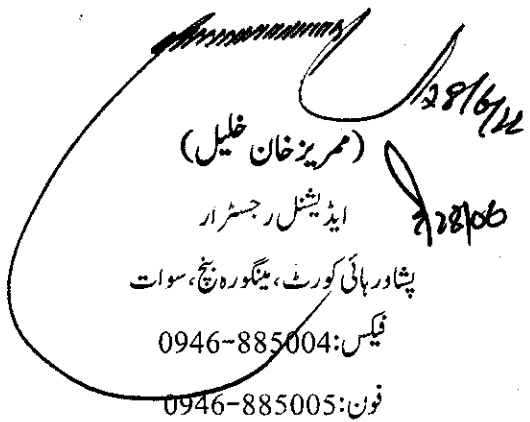 28/6/22
(ممریز خان خلیل)
28/06
ایڈیشنل رجسٹرار
پشاور ہائی کورٹ، مینگورہ بنچ، سوات
فیکس: 0946-885004
فون: 0946-885005